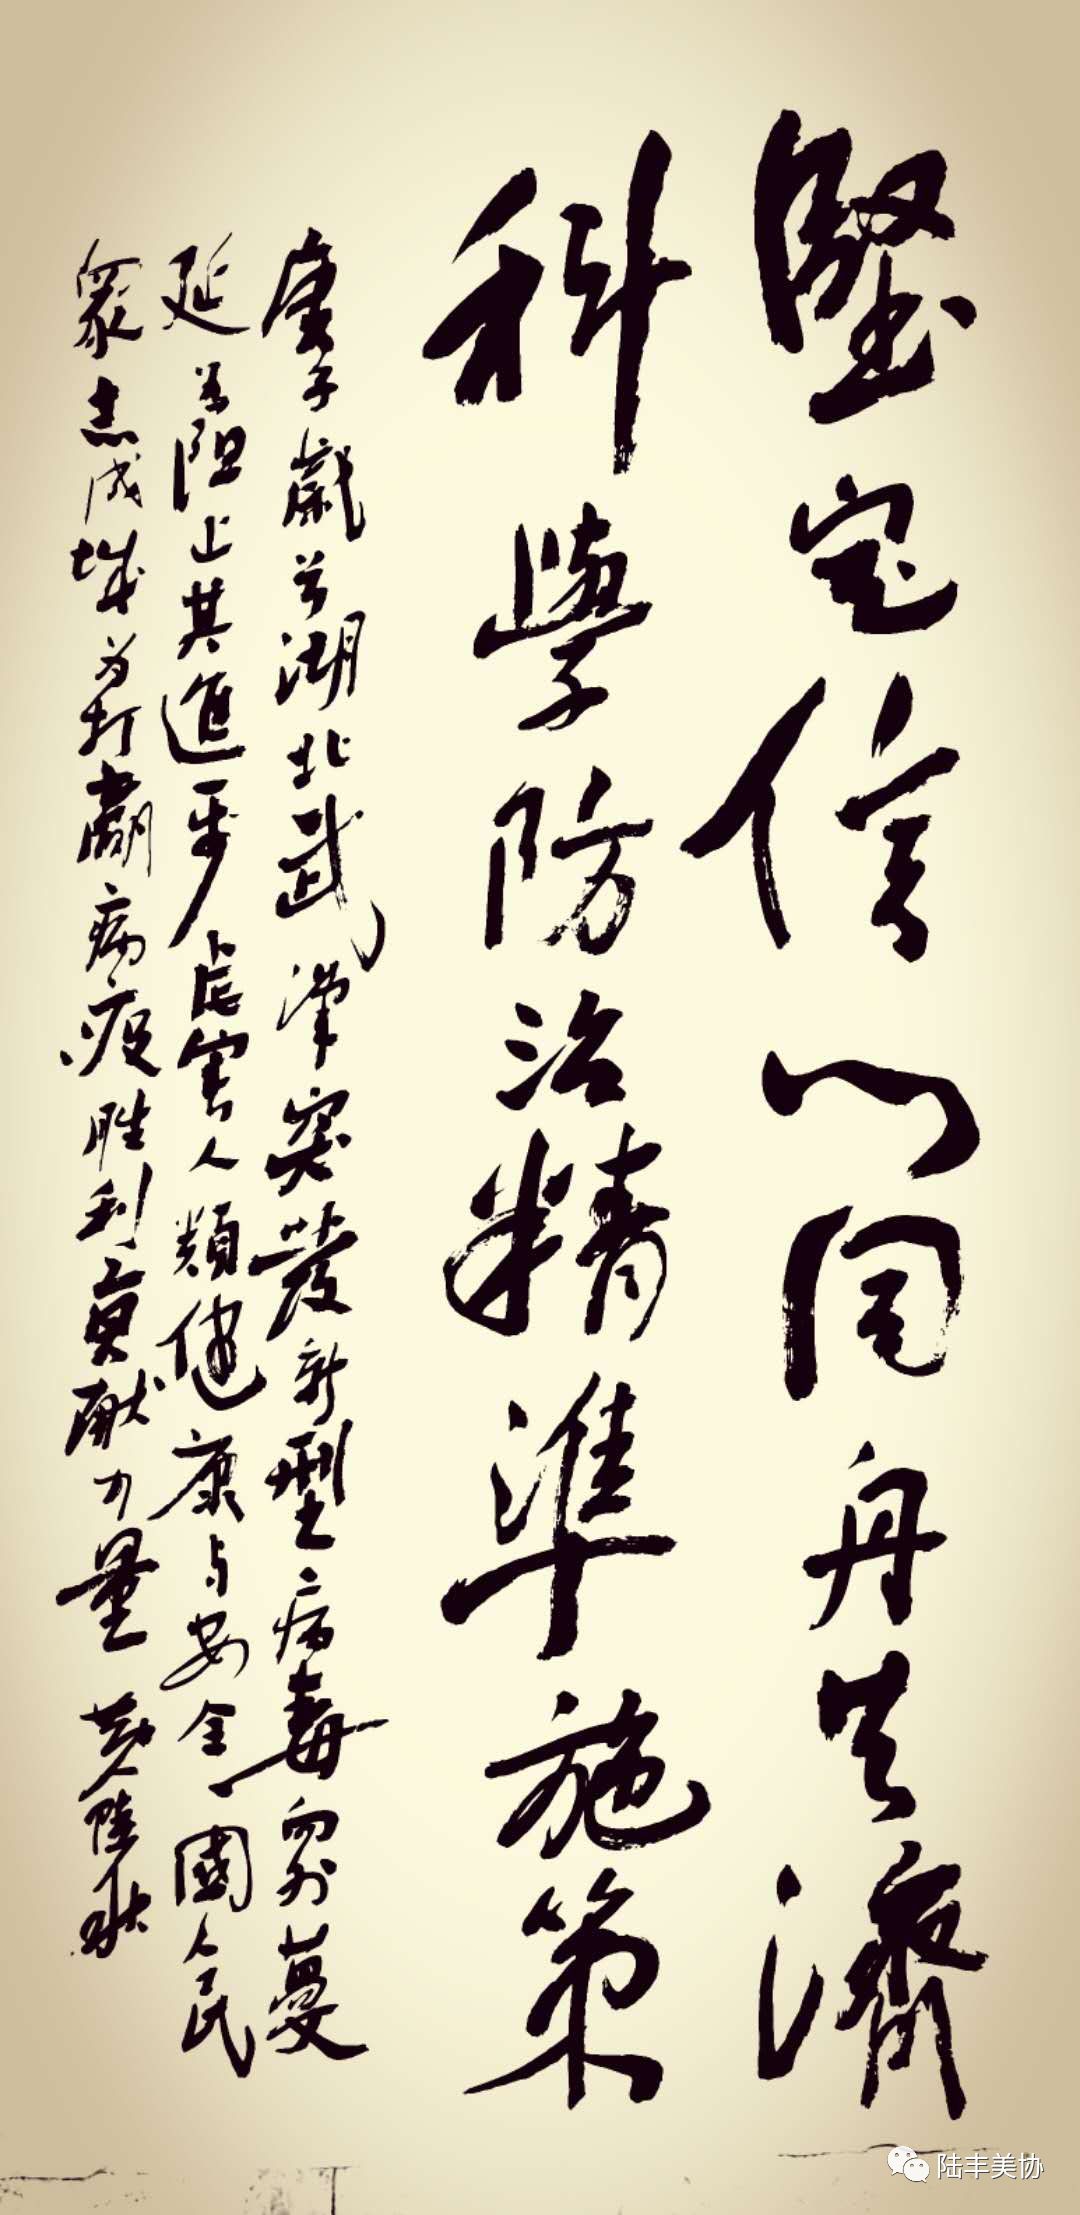 堅定信心同舟共濟
科學防治精準施策
庚子歲首湖北武漢突發新型病毒四列蔓
延為阻止其進一步危害人類健康与安全一國人民
眾志成城为打贏病疫勝利貢献力量 黄陸秋
陆丰美协